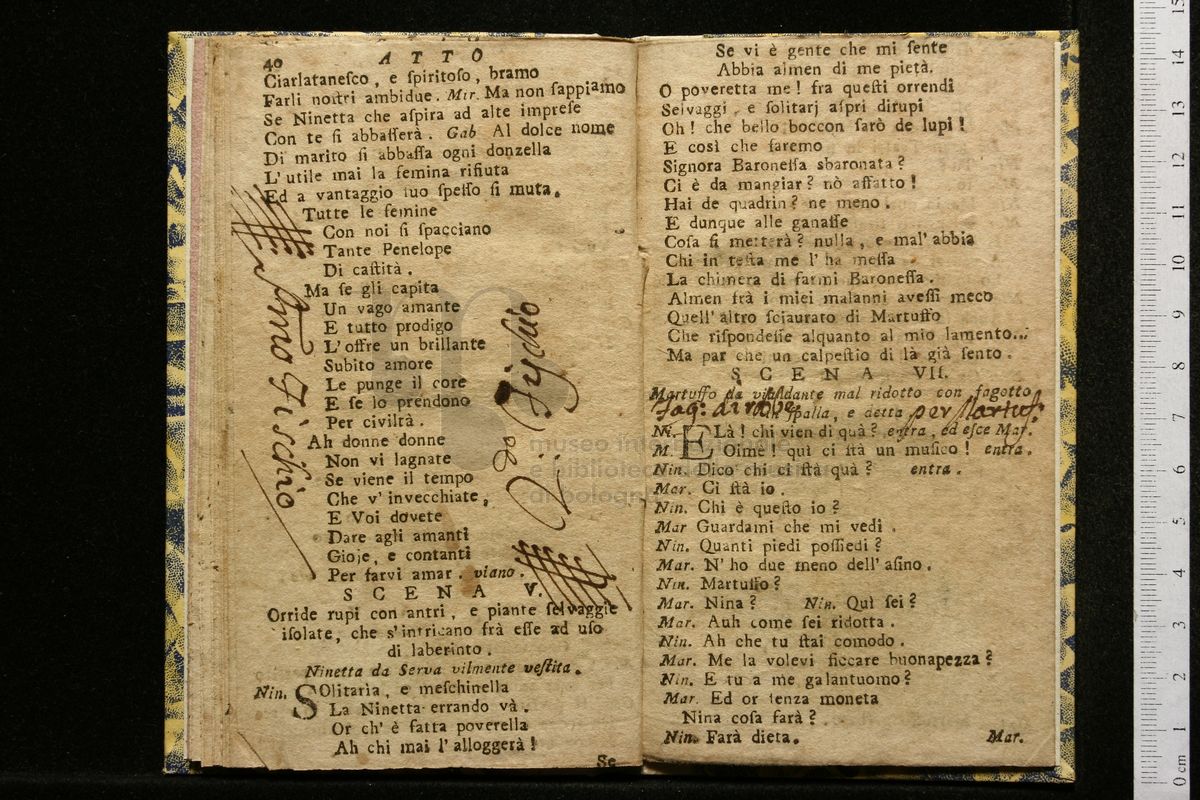 40
ATTO
Ciarlatanesco, e spiritoso, bramo
Farli nostri ambidue. Mir. Ma non sappiamo
Se Ninetta che aspira ad alte imprese
Con te si abbasserà. Gab Al dolce nome
Di marito si abbassa ogni donzella
L'utile mai la femina rifiuta
Ed a vantaggio tuo spesso si muta.
Tutte le femine
Con noi si spacciano
Tante Penelope
Di castità.
Ma se gli capita
Un vago amante
E tutto prodigo
L'offre un brillante
Subito amore
Le punge il core
E se lo prendono
Per civiltà.
Ah donne donne
Non vi lagnate
Se viene il tempo
Che v'invecchiate,
E Voi dovete
Dare agli amanti
Gioje, e contanti
Per farvi amar. viano.
SCENA V.
Orride rupi con antri, e piante selvaggie
isolate, che s'intricano frà esse ad uso
di laberinto.
Ninetta da Serva vilmente vestita.
Nin. SOlitaria, e meschinella
La Ninetta errando và.
Or ch'è fatta poverella
Ah chi mai l'alloggerà!
Se
Pmo Fischio
2.do Fischio
Se vi è gente che mi sente
Abbia almen di me pietà.
O poveretta me! fra questi orrendi
Selvaggi, e solitarj aspri dirupi
Oh! che bello boccon sarò de lupi!
E così che faremo
Signora Baronessa sbaronata?
Ci è da mangiar? nò affatto!
Hai de quadrin? ne meno.
E dunque alle ganasse
Cosa si metterà? nulla, e mal'abbia
Chi in testa me l'ha messa
La chimera di farmi Baronessa.
Almen frà i miei malanni avessi meco
Quell'altro sciaurato di Martuffo
Che rispondesse alquanto al mio lamento...
Ma par che un calpestio di là già sento.
SCENA VII.
Martuffo da viandante mal ridotto con fagotto
in spalla, e detta
Fag: di robe per Martuf:
Ni. ELà! chi vien di quà? entra, ed esce Mar.
M. Oimè! quì ci stà un musico! entra.
Nin. Dico chi ci stà quà? entra.
Mar. Ci stà io.
Nin. Chi è questo io?
Mar Guardami che mi vedi.
Nin. Quanti piedi possiedi?
Mar. N'ho due meno dell'asino.
Nin. Martuffo?
Mar. Nina? Nin. Quì sei?
Mar. Auh come sei ridotta.
Nin. Ah che tu stai comodo.
Mar. Me la volevi ficcare buonapezza?
Nin. E tu a me galantuomo?
Mar. Ed or senza moneta
Nina cosa farà?
Nin. Farà dieta.
Mar.
museo internazionale
e biblioteca della musica
di bologna
0 cm 1 2 3 4 5 6 7 8 9 10 11 12 13 14 15